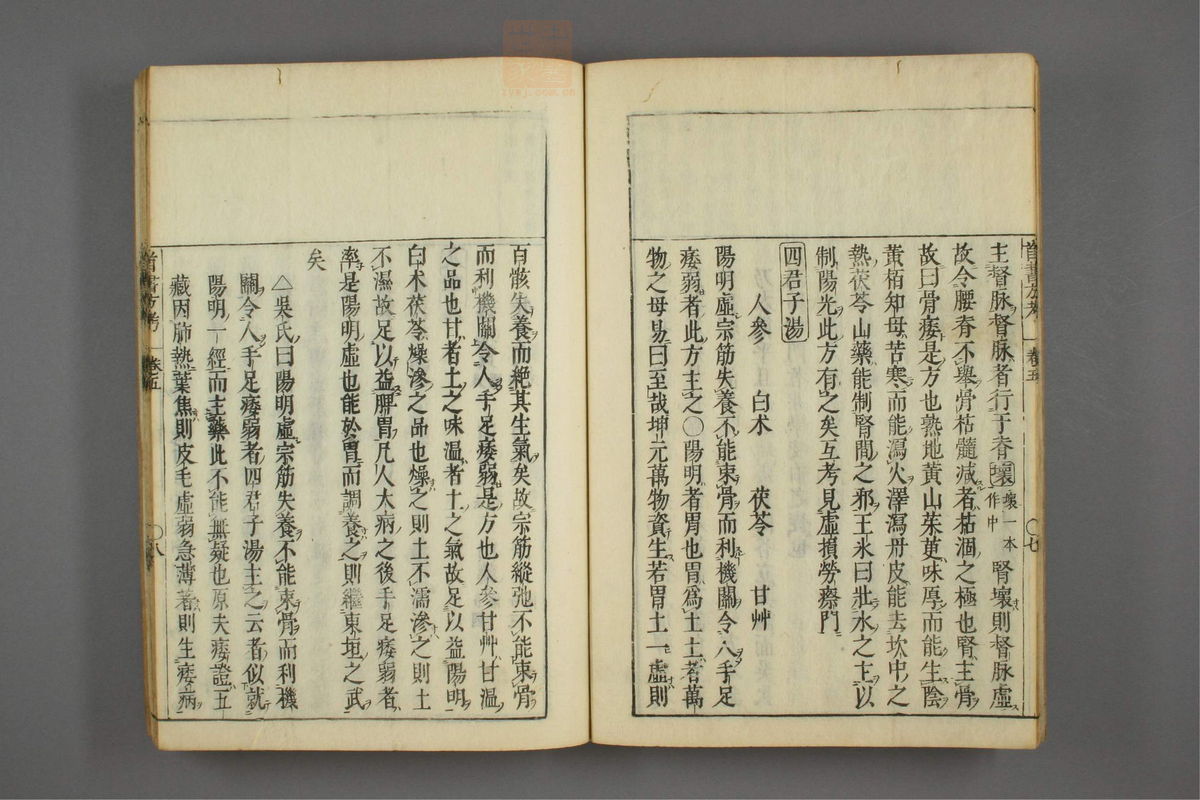 主督脉督脉者行于脊壞壞一本作中腎壞則督脉虛
故令腰脊不舉骨枯髓減者枯涸之極也腎主骨
故曰骨痿是方也熟地黃山茱萸味厚而能生陰
黃栢知母苦寒而能瀉火澤瀉丹皮能去坎中之
熱茯苓山藥能制腎間之邪王氷曰壯水之主以
制陽光此方有之矣互考見虛損勞瘵門
四君子湯
人參　白朮　茯苓　甘艸
陽明虛宗筋失養不能束骨而利機關令人手足
痿弱者此方主之〇陽明者胃也胃爲土土者萬
物之母易曰至哉坤元萬物資生若胃土一虛則
卷五
〇七
百骸失養而絶其生氣矣故宗筋縱弛不能束骨
而利機關令人手足痿弱是方也人參甘艸甘溫
之品也甘者土之味溫者土之氣故足以益陽明
白朮茯苓燥滲之品也燥之則土不濡滲之則土
不濕故足以益脾胃凡人大病之後手足痿弱者
率是陽明虛也能於胃而調養之則繼東垣之武
矣
△吳氏曰陽明虛宗筋失養不能束骨而利機
關令人手足痿弱者四君子湯主之云者似就
陽明一經而主藥此不能無疑也原夫痿證五
藏因肺熱葉焦則皮毛虛弱急薄著則生痿病
卷五
〇八
zysj.com.cn